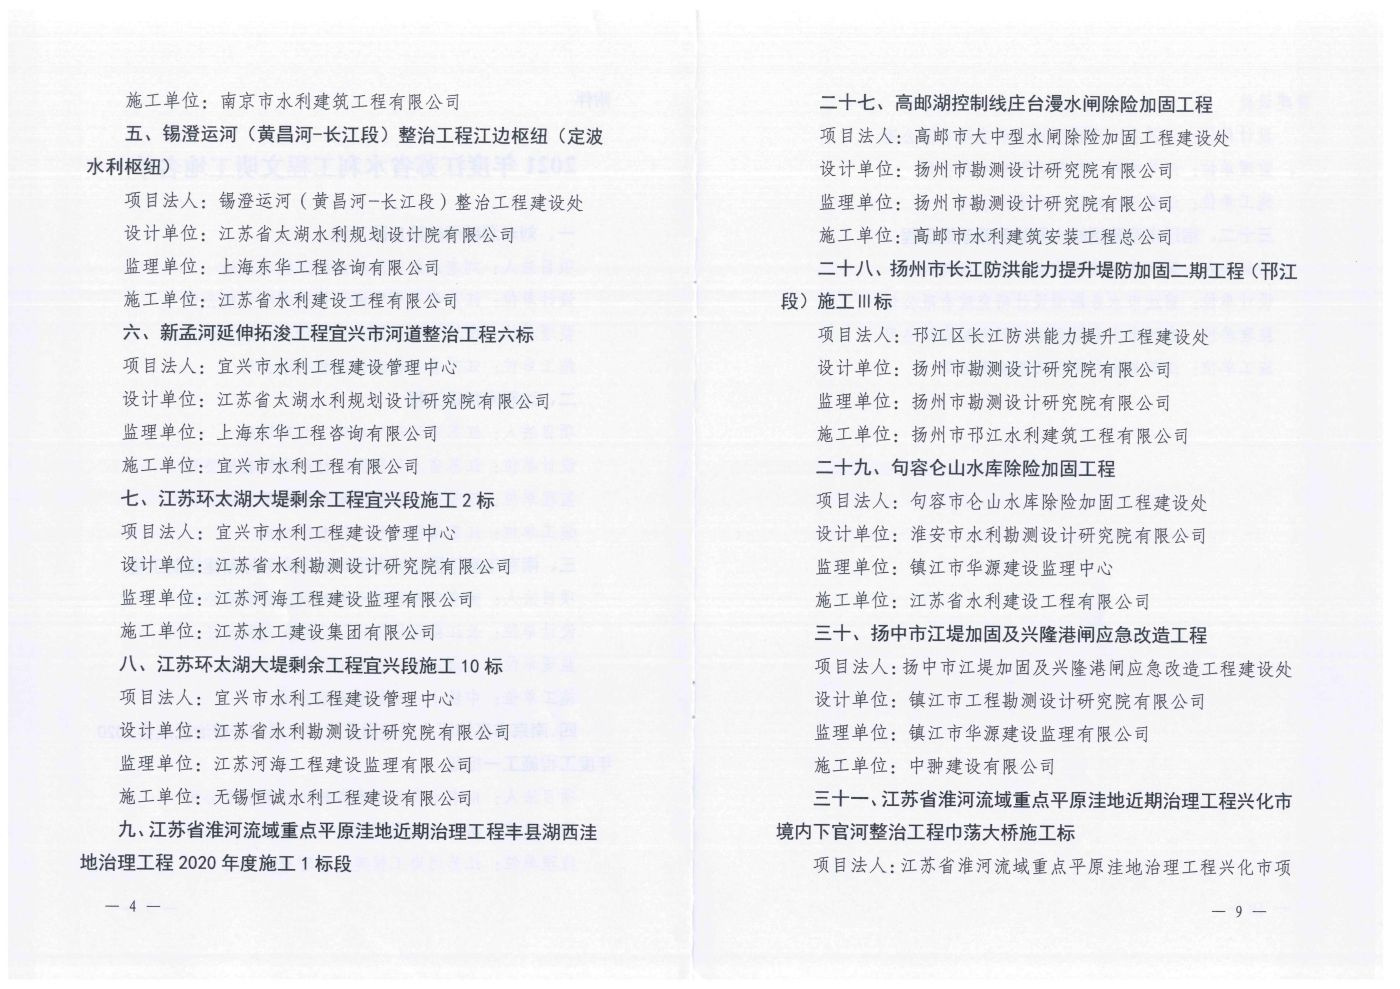 施工单位：南京市水利建筑工程有限公司
五、锡澄运河（黄昌河-长江段）整治工程江边枢纽（定波
水利枢纽）
项目法人：锡澄运河（黄昌河-长江段）整治工程建设处
设计单位：江苏省太湖水利规划设计院有限公司
监理单位：上海东华工程咨询有限公司
施工单位：江苏省水利建设工程有限公司
六、新孟河延伸拓浚工程宜兴市河道整治工程六标
项目法人：宜兴市水利工程建设管理中心
设计单位：江苏省太湖水利规划设计研究院有限公司
监理单位：上海东华工程咨询有限公司
施工单位：宜兴市水利工程有限公司
七、江苏环太湖大堤剩余工程宜兴段施工2标
项目法人：宜兴市水利工程建设管理中心
设计单位：江苏省水利勘测设计研究院有限公司
监理单位：江苏河海工程建设监理有限公司
施工单位：江苏水工建设集团有限公司
八、江苏环太湖大堤剩余工程宜兴段施工10标
项目法人：宜兴市水利工程建设管理中心
设计单位：江苏省水利勘测设计研究院有限公司
监理单位：江苏河海工程建设监理有限公司
施工单位：无锡恒诚水利工程建设有限公司
九、江苏省淮河流域重点平原洼地近期治理工程丰县湖西洼
地治理工程2020年度施工1标段
— 4 —
二十七、高邮湖控制线庄台漫水闸除险加固工程
项目法人：高邮市大中型水闸除险加固工程建设处
设计单位：扬州市勘测设计研究院有限公司
监理单位：扬州市勘测设计研究院有限公司
施工单位：高邮市水利建筑安装工程总公司
二十八、扬州市长江防洪能力提升堤防加固二期工程（邗江
段）施工Ⅲ标
项目法人：邗江区长江防洪能力提升工程建设处
设计单位：扬州市勘测设计研究院有限公司
监理单位：扬州市勘测设计研究院有限公司
施工单位：扬州市邗江水利建筑工程有限公司
二十九、句容仑山水库除险加固工程
项目法人：句容市仑山水库除险加固工程建设处
设计单位：淮安市水利勘测设计研究院有限公司
监理单位：镇江市华源建设监理中心
施工单位：江苏省水利建设工程有限公司
三十、扬中市江堤加固及兴隆港闸应急改造工程
项目法人：扬中市江堤加固及兴隆港闸应急改造工程建设处
设计单位：镇江市工程勘测设计研究院有限公司
监理单位：镇江市华源建设监理有限公司
施工单位：中翀建设有限公司
三十一、江苏省淮河流域重点平原洼地近期治理工程兴化市
境内下官河整治工程巾荡大桥施工标
项目法人：江苏省淮河流域重点平原洼地治理工程兴化市项
— 9 —